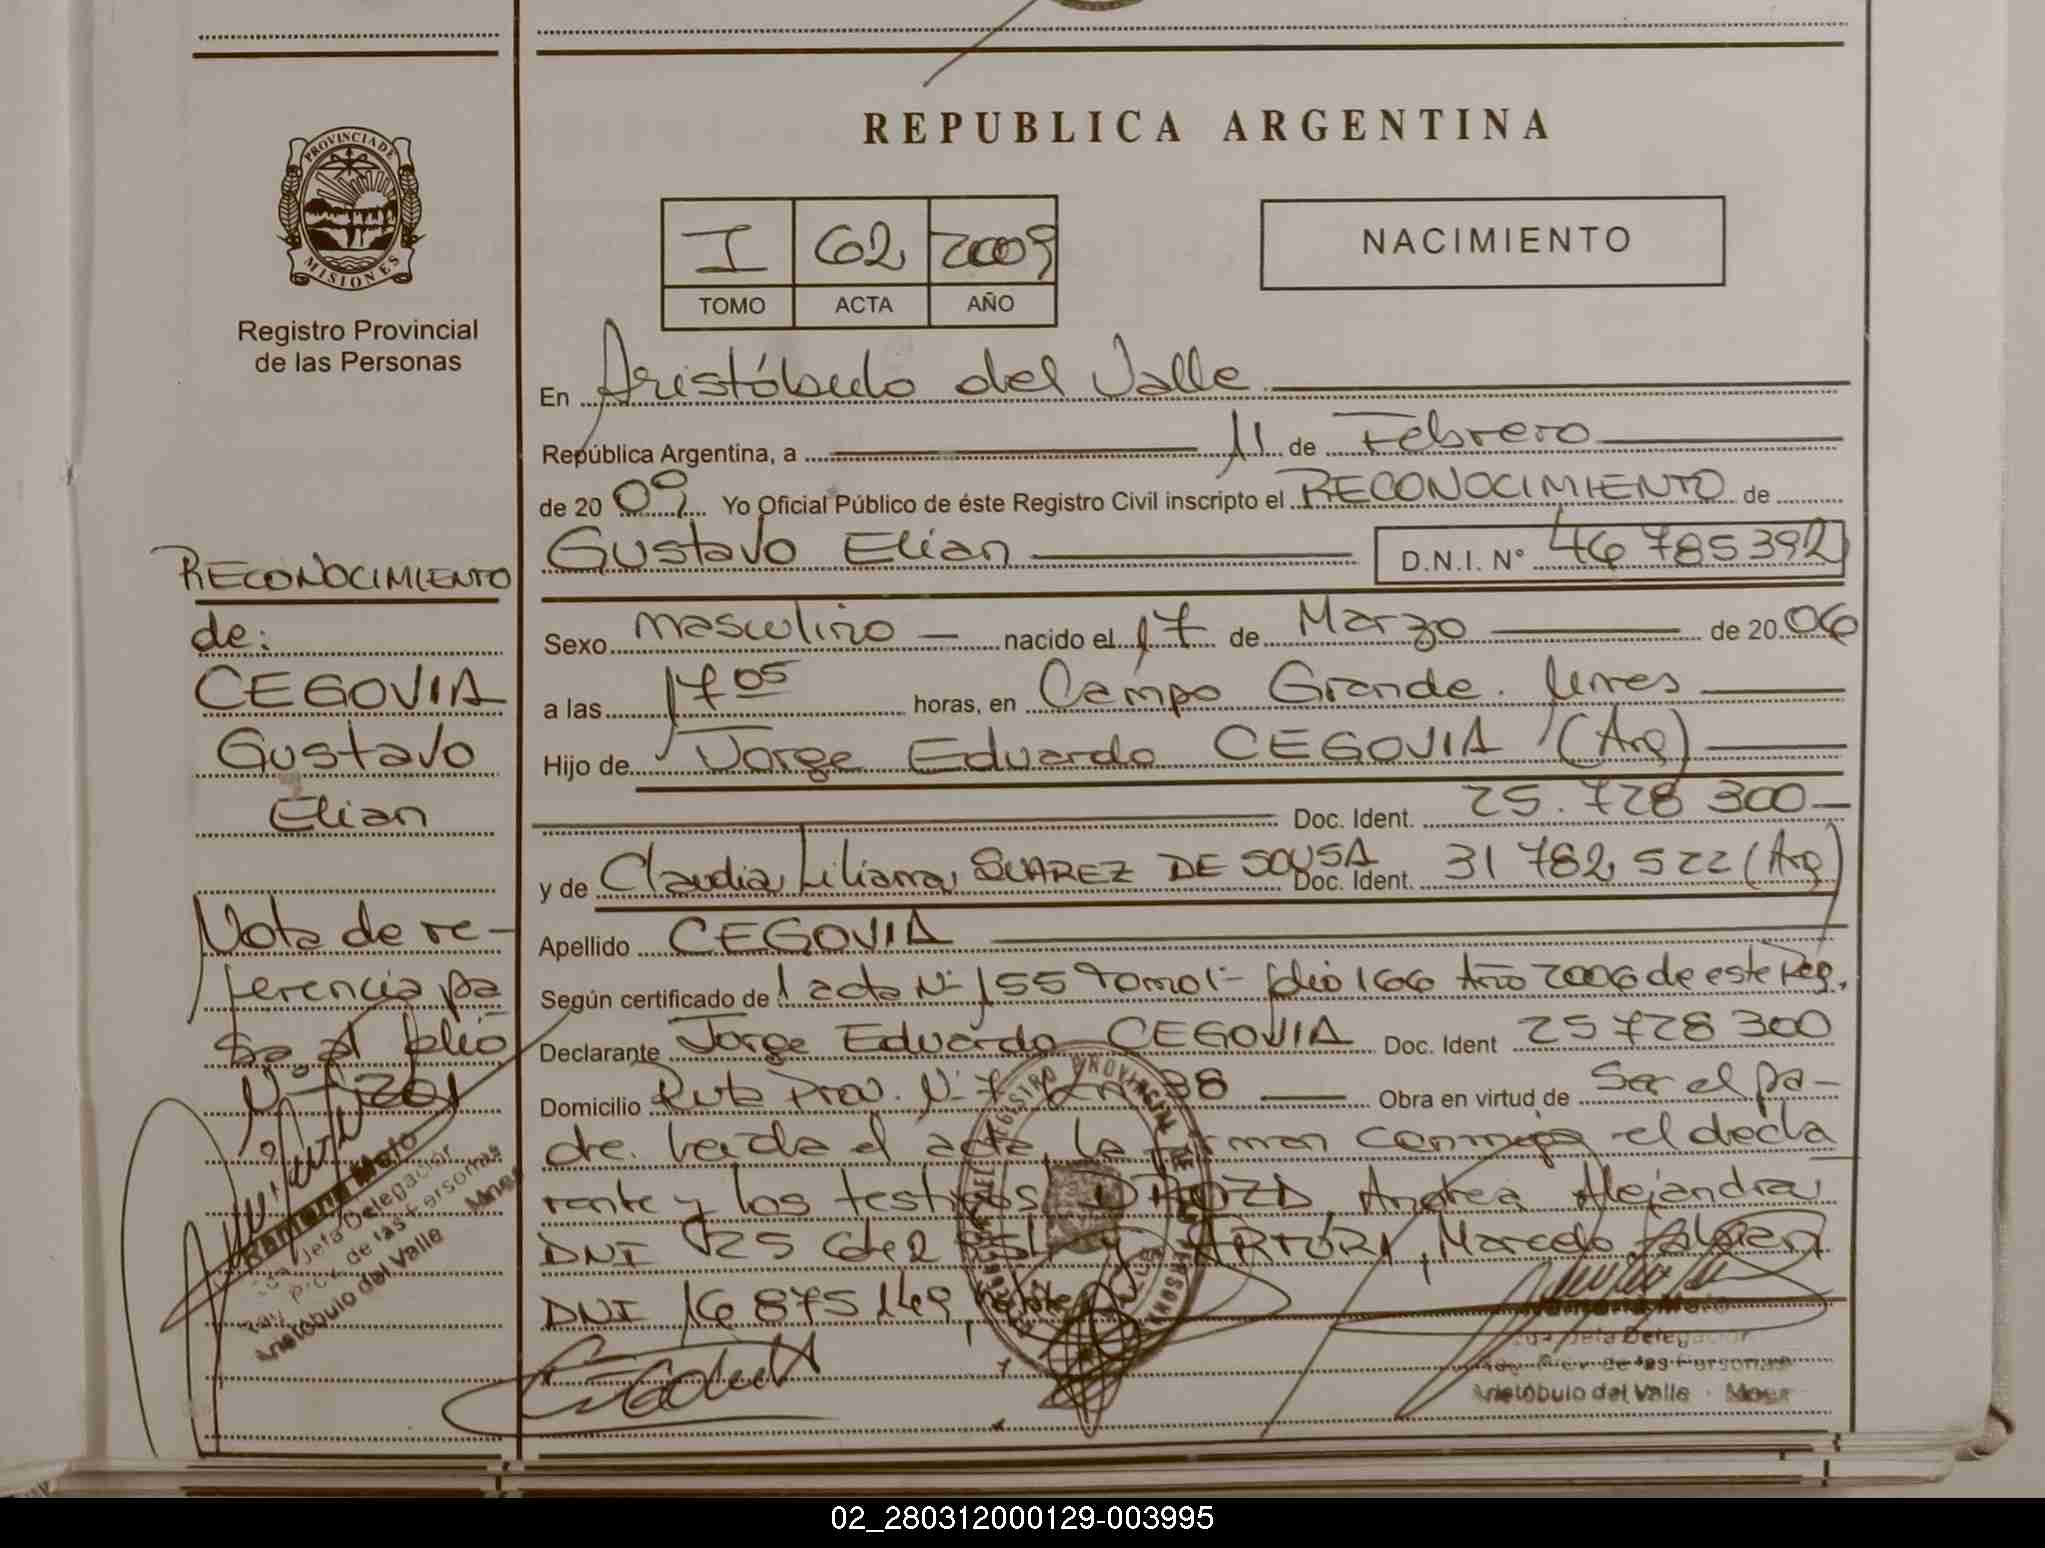 REPUBLICA ARGENTINA
PROVINCIA DE
MISIONES
Registro Provincial
de las Personas
I 62 2009
TOMO ACTA AÑO
NACIMIENTO
En Aristóbulo del Valle
República Argentina, a 11 de Febrero
de 2009 Yo Oficial Público de éste Registro Civil inscripto el RECONOCIMIENTO de
Gustavo Elian D.N.I. Nº 46 785392
Sexo masculino nacido el 17 de Marzo de 2006
a las 17 05 horas, en Campo Grande.
Hijo de Jorge Eduardo CEGOVIA (Arg)
Doc. Ident. 25.728 300
y de Claudia Liliana SUAREZ DE SOUSA Doc. Ident. 31 782 522 (Arg)
Apellido CEGOVIA
Según certificado de acta Nº 155 Tomo 1º folio 166 Año 2006 de este Reg.
Declarante Jorge Eduardo CEGOVIA Doc. Ident 25 728 300
Domicilio Ruta Prov. Nº 7 Km 38 Obra en virtud de Ser el pa-
dre. Leida el acta la firman conmigo el decla
rante y los testigos Andrea Alejandra
DNI 25 y Marcelo
DNI 16 875 149
RECONOCIMIENTO
de:
CEGOVIA
Gustavo
Elian
Nota de re-
ferencia pa
sa al folio
Nº 201
Ramona
Jefa Delegación
Reg. Prov. de las Personas
Aristóbulo del Valle Mnes
REGISTRO PROVINCIAL DE
Jefa Delegación
Reg. Prov. de las Personas
Aristóbulo del Valle - Mnes
02_280312000129-003995